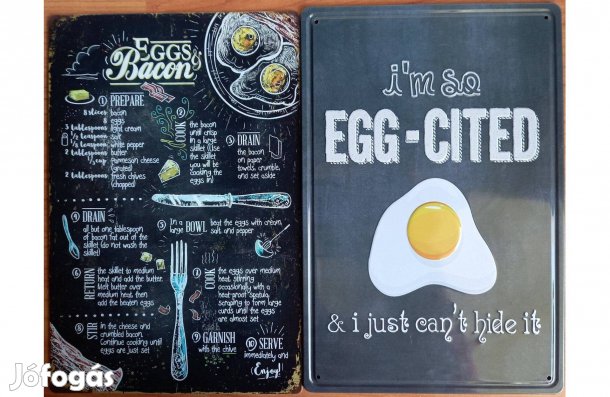 EGGS &
Bacon
① PREPARE
8 slices bacon
8 eggs
3 tablespoons light cream
½ teaspoon salt
¼ teaspoon white pepper
2 tablespoons butter
½ cup parmesan cheese
(grated)
2 tablespoons fresh chives
(chopped)
② COOK
the bacon
until crisp
in a large
skillet (Use
the skillet
you will be
cooking the
eggs in)
③ DRAIN
the bacon
on paper
towels, crumble,
and set aside
④ DRAIN
all but one tablespoon
of bacon fat out of the
skillet (do not wash the
skillet)
⑤ In a large BOWL beat the eggs with cream,
salt, and pepper
⑥ RETURN
the skillet to medium
heat and add the butter.
Melt butter over
medium heat then
add the beaten eggs
⑦ COOK
the eggs over medium
heat, stirring
occasionally with a
heat-proof spatula,
scraping to form large
curds until the eggs
are almost set
⑧ STIR
in the cheese and
crumbled bacon.
Continue cooking until
eggs are just set
⑨ GARNISH
with the chive
⑩ SERVE
immediately and
(Enjoy!)
i'm so
EGG-CITED
& i just can't hide it
Jófogás